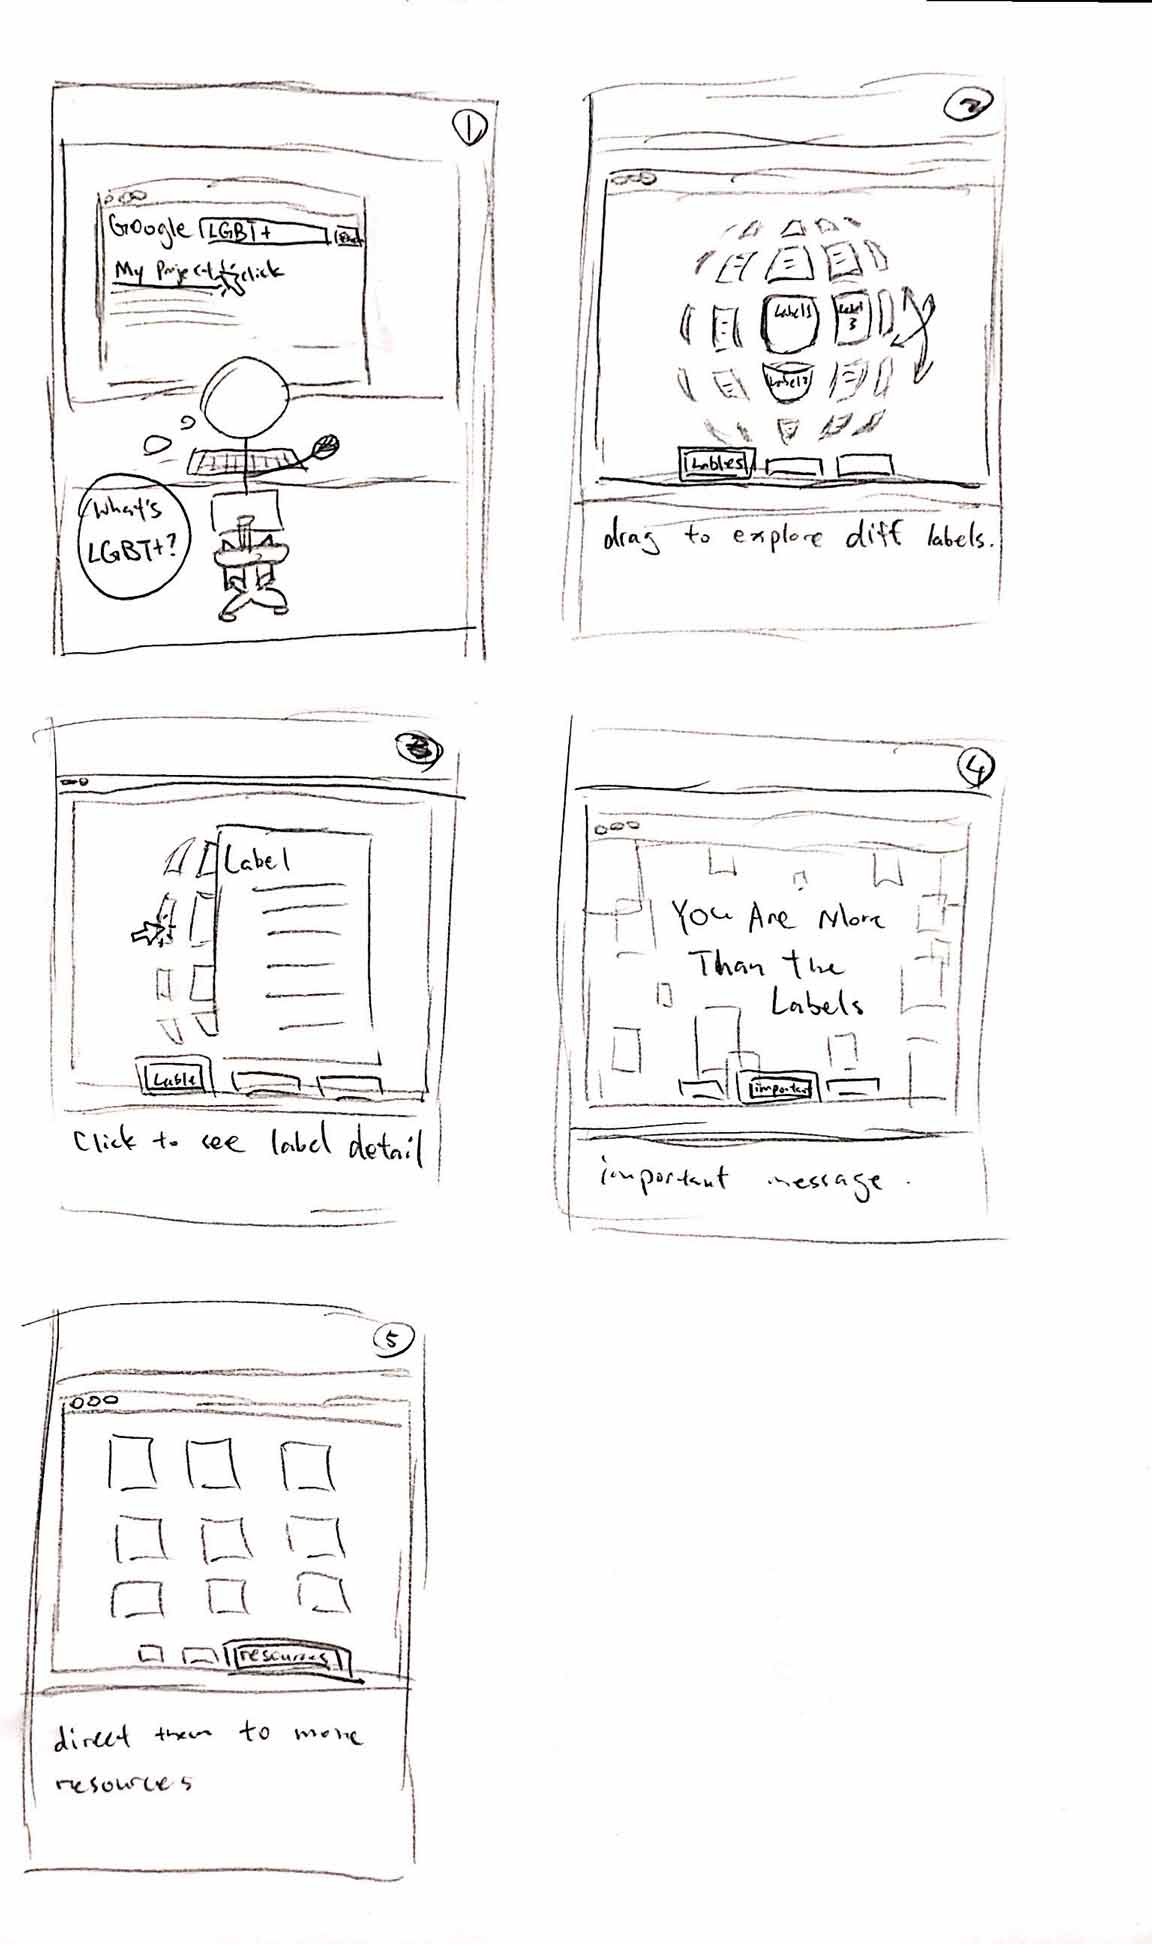 1
Google LGBT+
My Project click
What's
LGBT+?
2
Label1 Label
3
Label2
Lables
drag to explore diff labels.
3
Label
Lable
Click to see label detail
4
You Are More
Than the
Labels
important
important message.
5
resources
direct them to more
resources